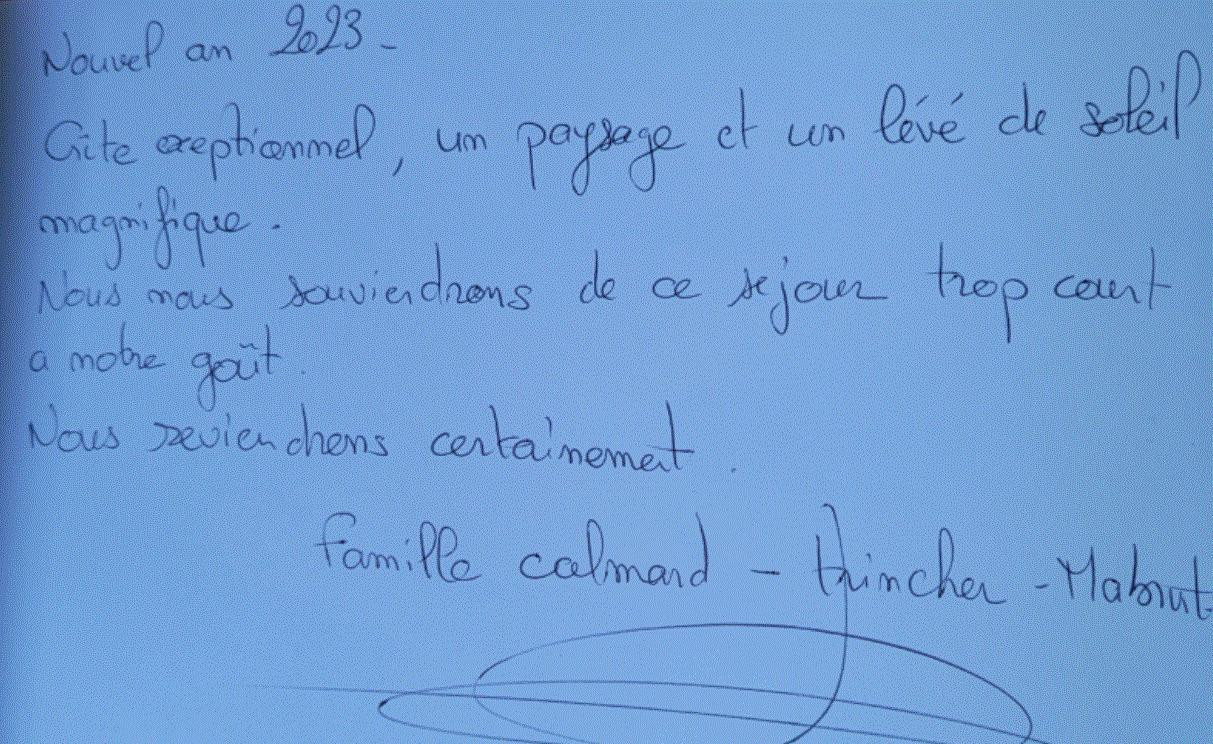 Nouvel an 2023 -
Gîte exeptionnel, un paysage et un lévé de soleil
magnifique.
Nous nous souviendrons de ce sejour trop court
a notre goût.
Nous reviendrons certainement.
Famille Calmard - Trincher - Mabrut